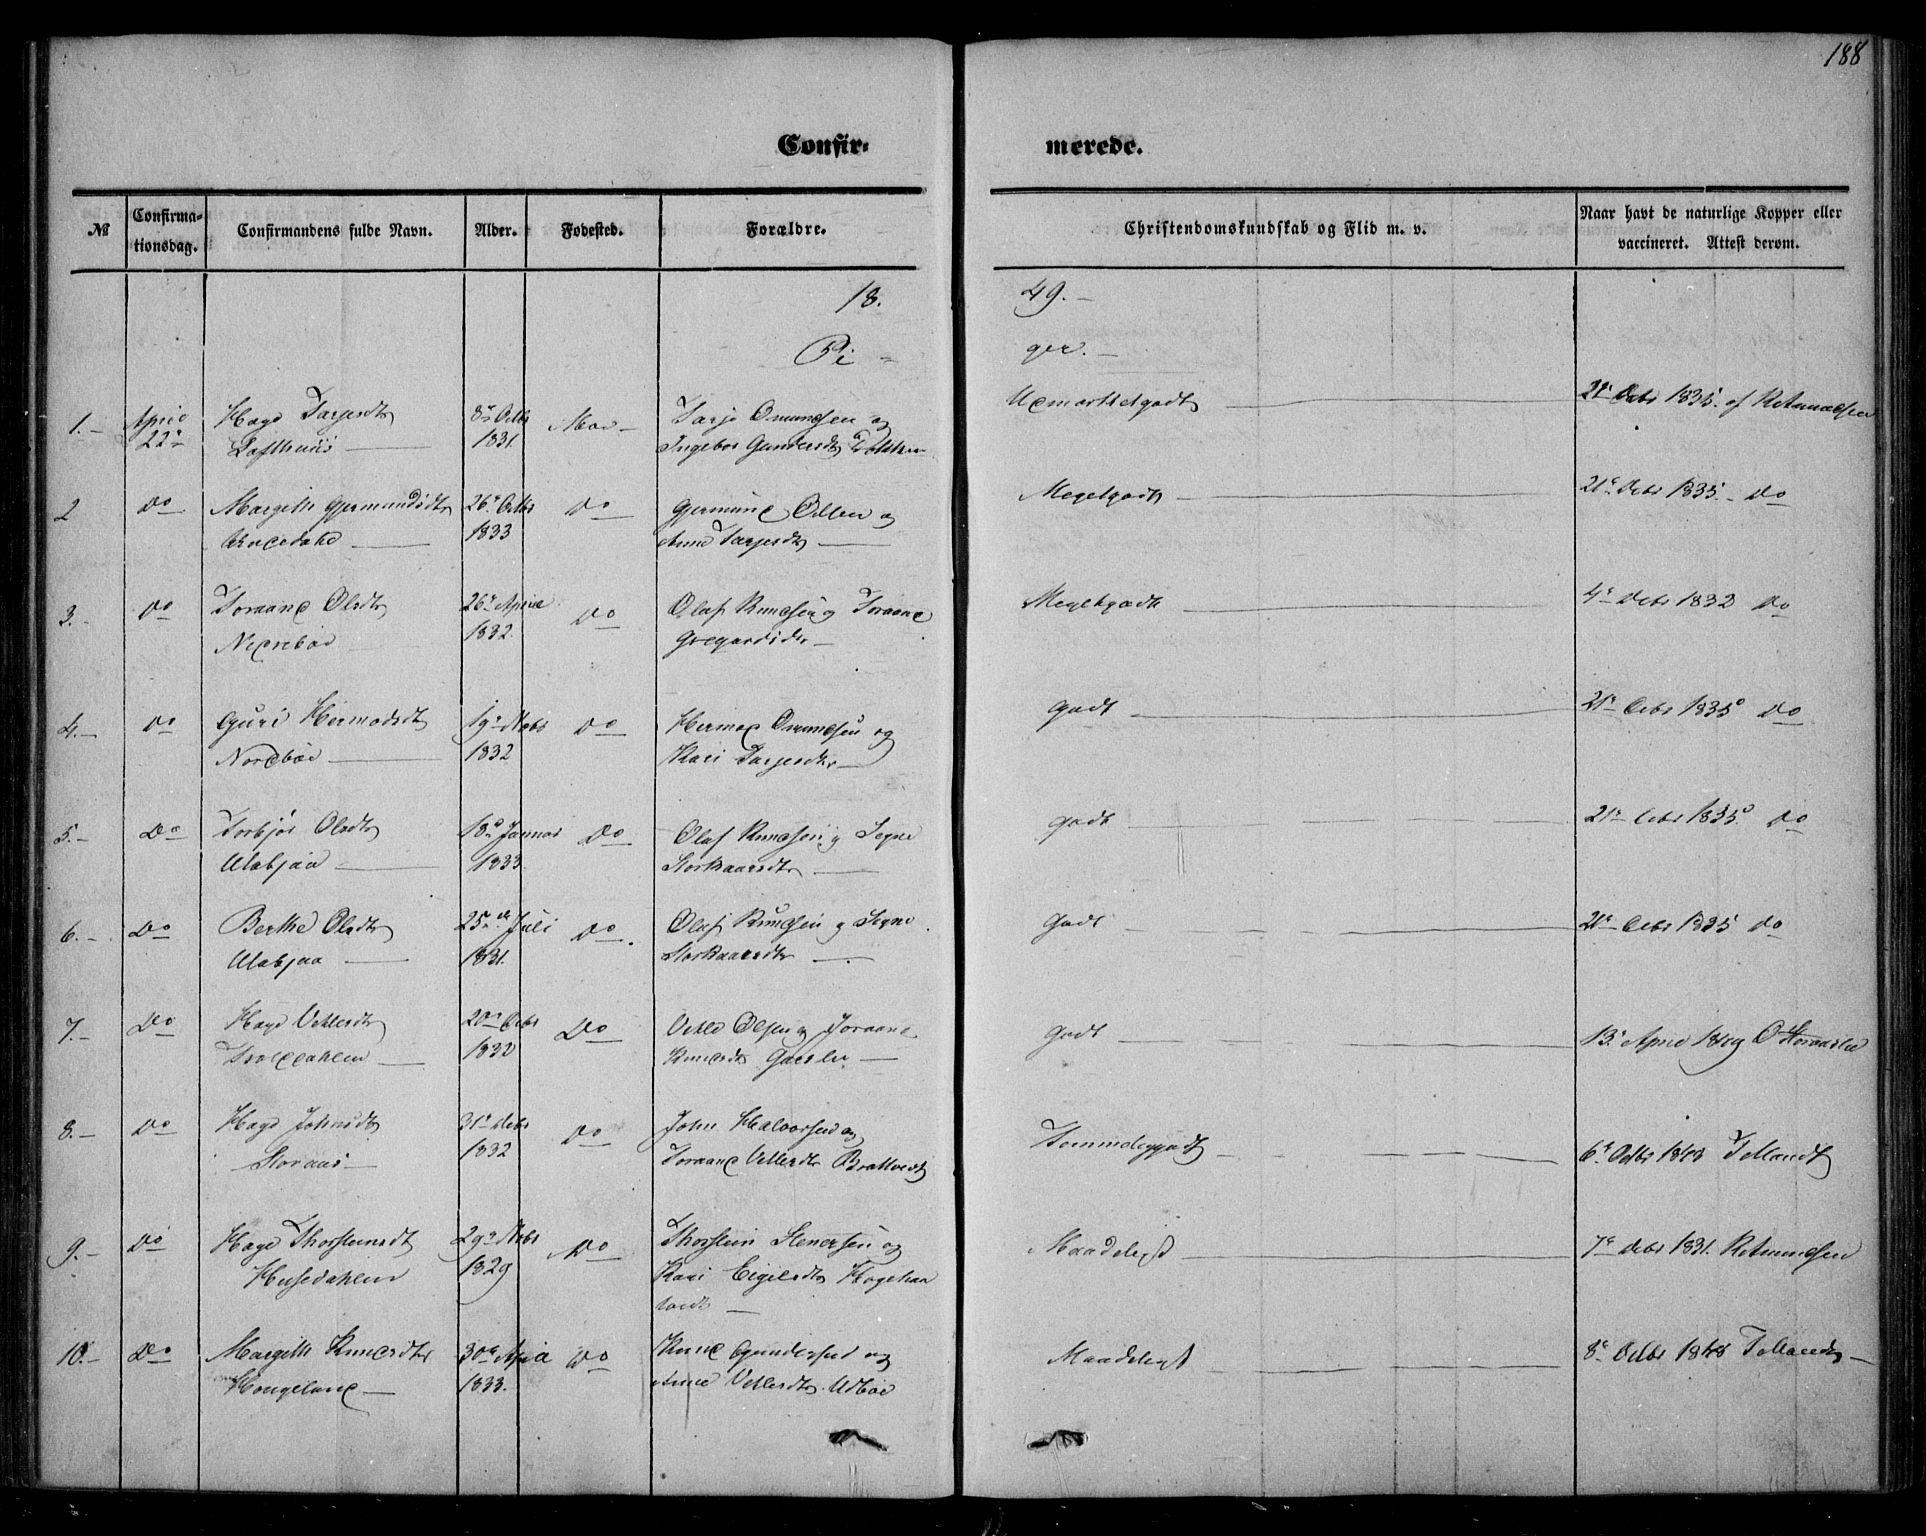 188
Confir- merede.
№ Confirma-tionsdag. Confirmandens fulde Navn. Alder. Fødested. Forældre. Christendomskundskab og Flid m. v. Naar havt de naturlige Kopper eller vaccineret. Attest derom.
18. 49.-
Pi- ger.-
1.- April 22 Hage Tarjesdtr Lofthuus 1831. Moe Tarje Omundsen og Ingebor Gundersdtr Udmærketgodt 1835. af
2 Do Margith Gjermundsdtr 26 Octbr 1833 Do Gjermund Olsen og Anne Tarjesdtr Megetgodt 21 Octbr 1835. Do
3.- Do Toraand Olsdtr 26 April 1832. Do Olaf Knudsen og Toraand Gregardsdtr Megetgodt 4 Decbr 1832 Do
4.- Do Gyuri Hermodsdtr Nordbøe 19 Novbr 1832 Do Hermod Omundsen og Kari Tarjesdtr godt 21 Octbr 1835 Do
5.- Do Torbjør Olsdtr Aabjaa 18 Januar 1833. Do Olaf Knudsen og Signe Storkaarsdtr godt 21 Octbr 1835. Do
6.- Do Berthe Olsdtr Aabjaa 25 Juli 1831. Do Olaf Knudsen og Signe Storkaarsdtr godt 21 Octbr 1835 Do
7.- Do Hage Vetlesdtr Trolddahlen 20 1832 Do Vetle Olsen og Joraand Knudsdtr godt 13 April
8.- Do Hage Johnsdtr Storaas 31 Decbr 1832 Do John Halvorsen og Toraand Vetlesdtr Temmeliggodt 6 Octbr Felland
9.- Do Hage Thorsteinsdtr Husedahlen 29 Novbr 1829 Do Thorstein Stenersen og Kari Eigilsdtr Maadeligt 7 Decbr 1831.
10.- Do Margith Knudsdtr Hougeland 30 April 1833. Do Knud Gundersen og Anne Vetlesdtr Udbøe Maadeligt 8 Octbr Felland